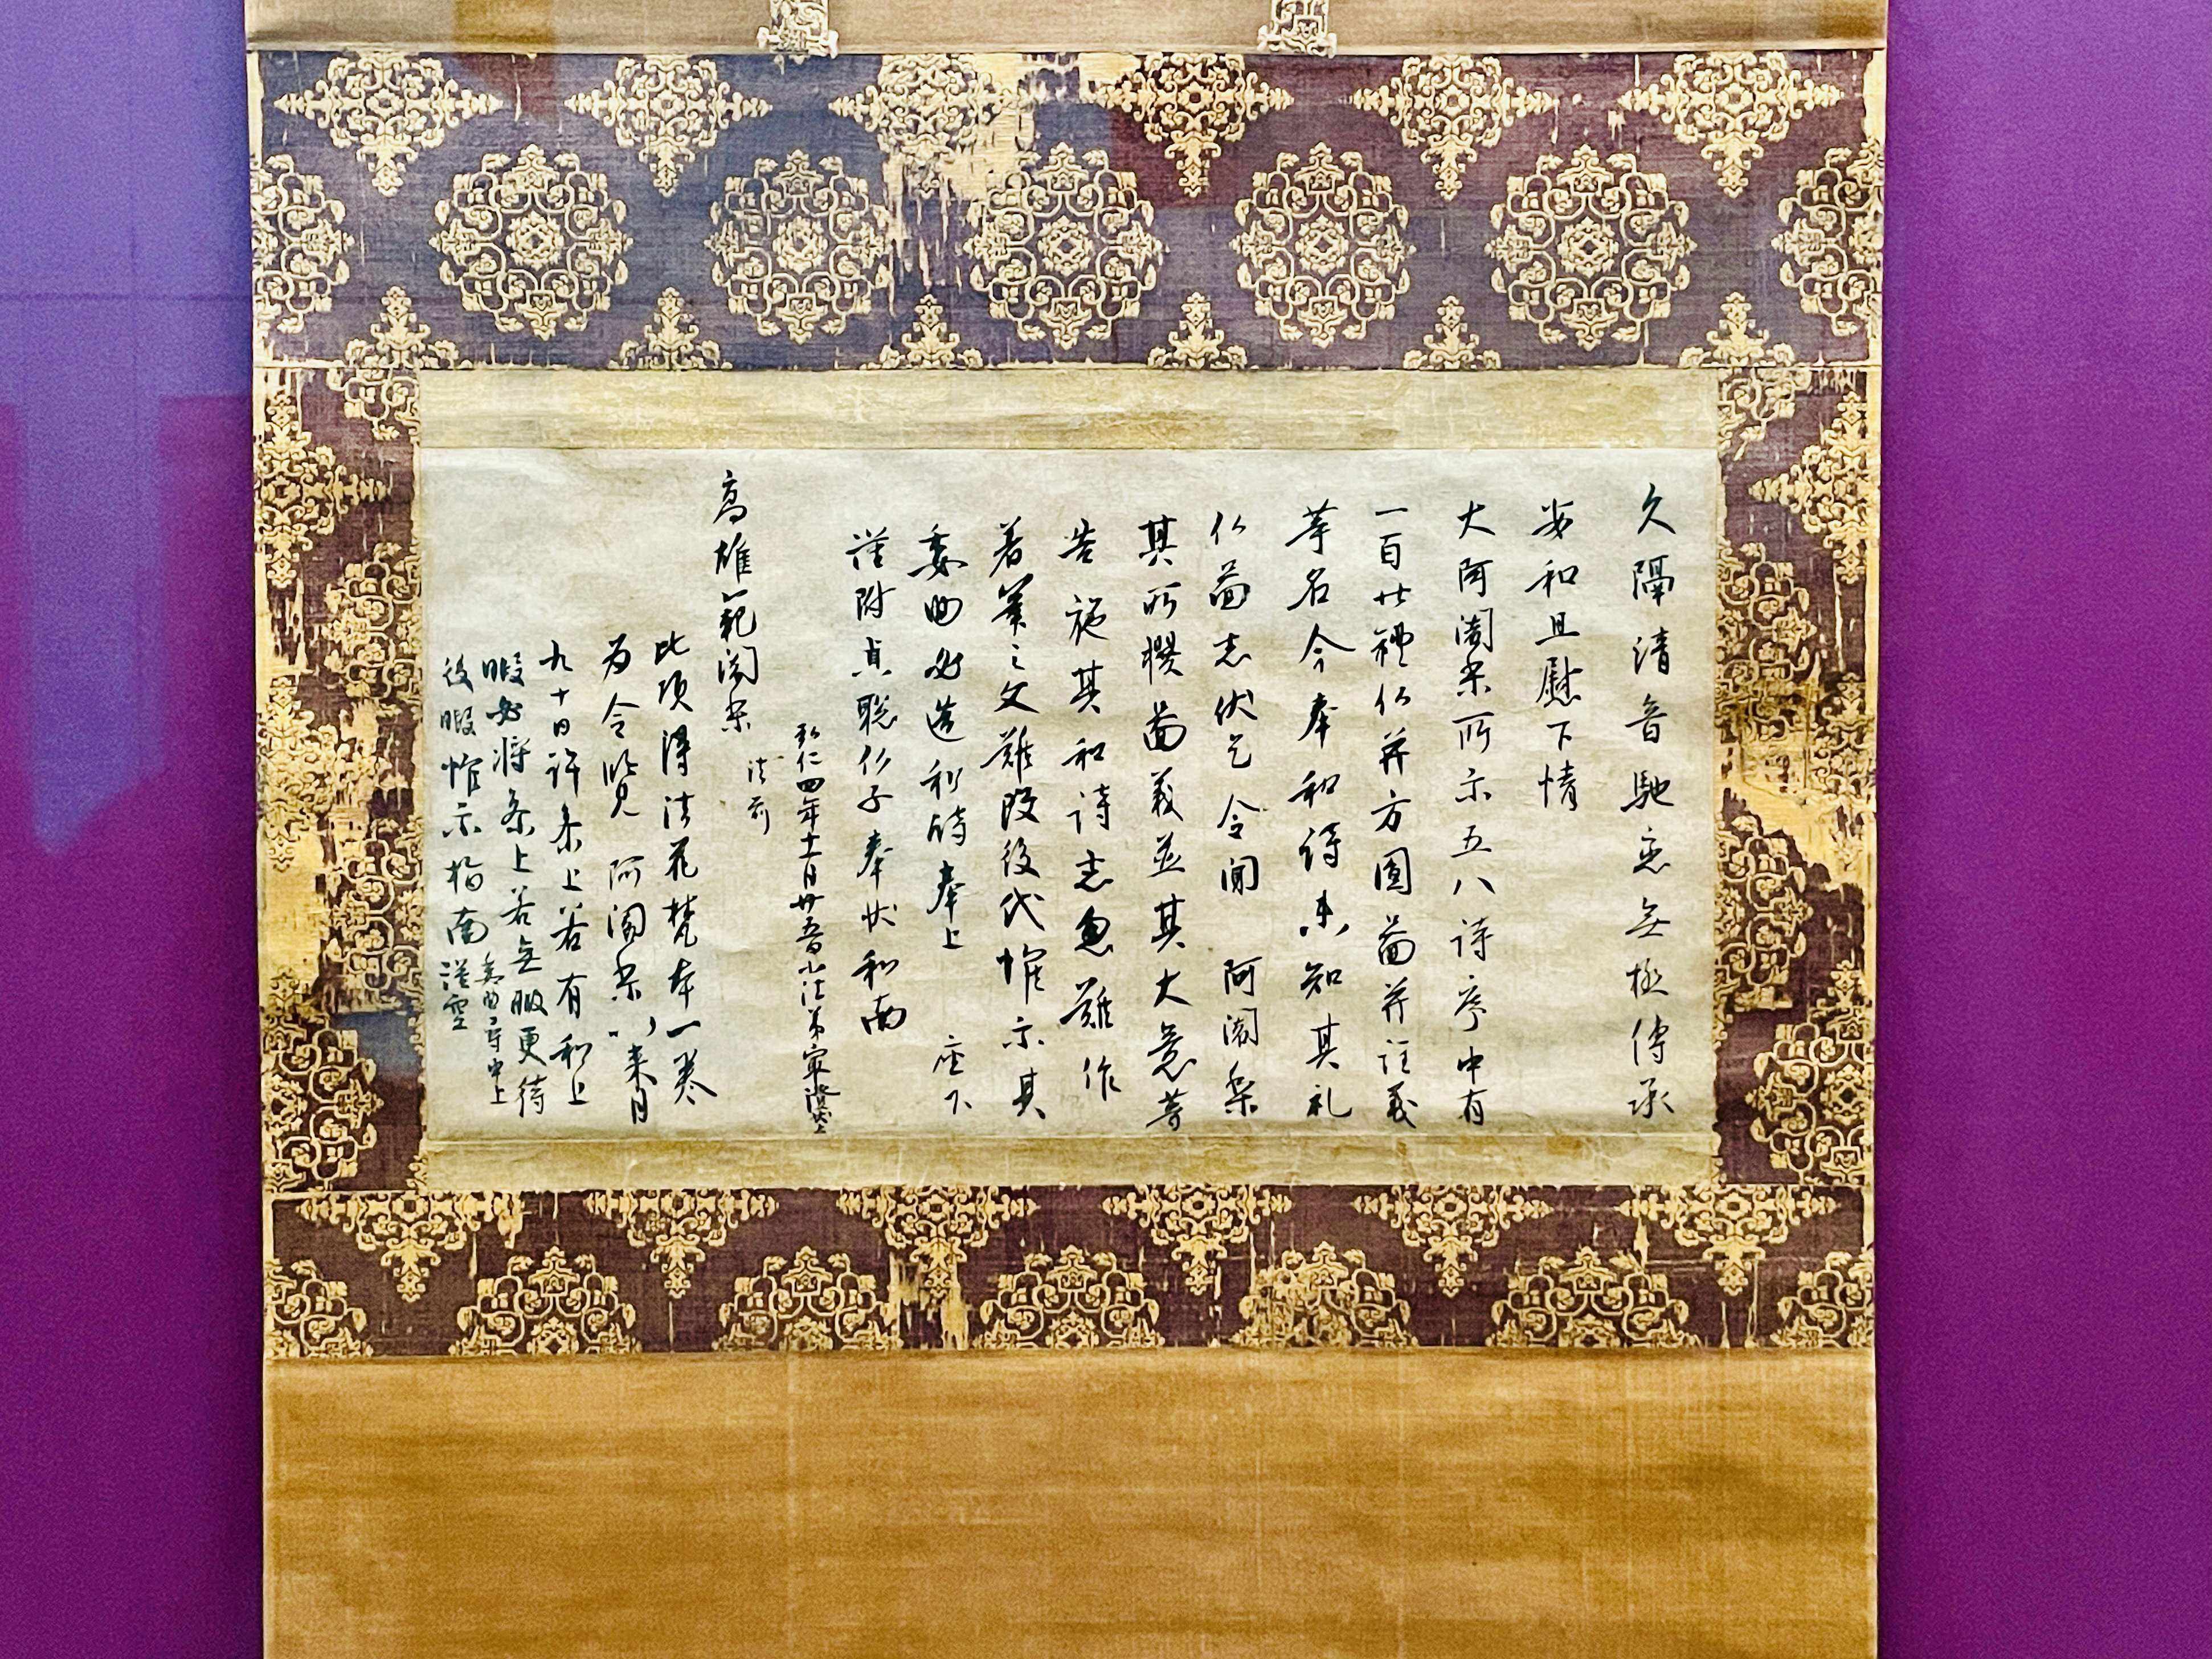 久隔清音馳恋無極傳承
安和且慰下情
大阿闍梨所示五八詩序中有
一百廿禮仏并方圓圖并註義
等名今奉和詩未知其礼
仏圖者伏乞令聞 阿闍梨
其所撰圖義並其大意等
告施其和詩者忽難作
著筆之文難改後代惟示其
委曲必造和詩奉上 座下
謹附貞聡仏子奉状和南
弘仁四年十一月廿五日小法弟最澄状上
高雄範闍梨
法前
此頃得法花梵本一巻
為令覧 阿闍梨以来月
九十日許参上若有和上
暇必将参上若無暇更待
後暇惟示指南 謹空
委曲尋申上